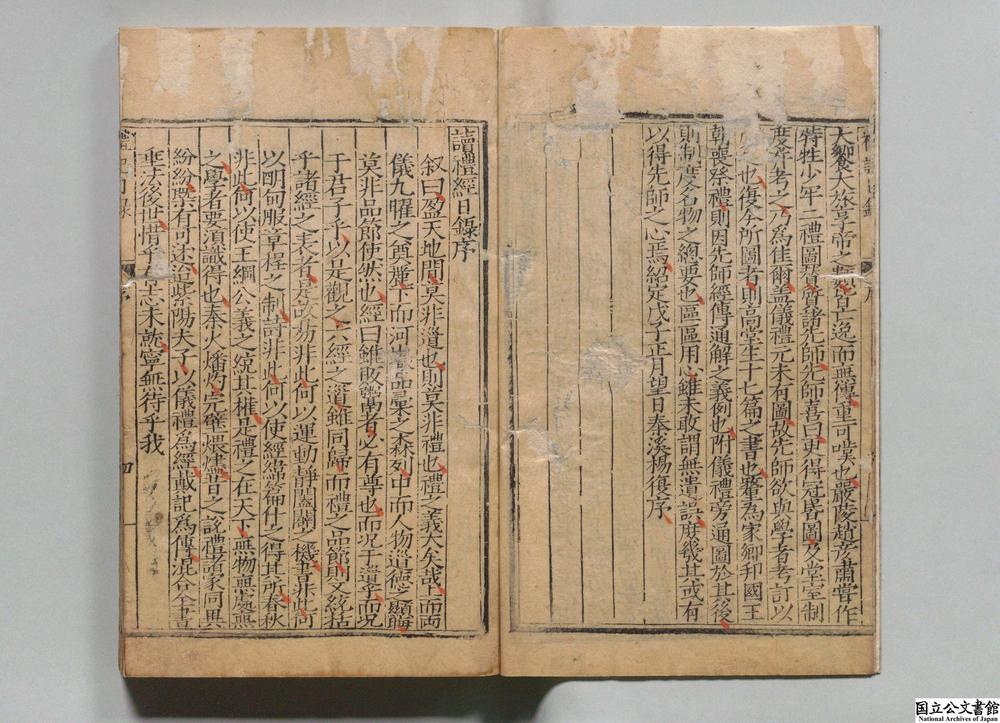 大饗大旅享帝之類皆亡逸而無傳重可嘆也嚴陵趙彦肅嘗作
特牲少牢二禮圖質諸先師先師喜曰更得冠昬圖及堂室制
度并考之乃為佳爾盖儀禮元未有圖故先師欲與學者考訂以
也復今所圖者則高堂生十七篇之書也釐為家鄉邦國王
朝喪祭禮則因先師經傳通解之義例也附儀禮旁通圖於其後
則制度名物之總要也區區用心雖未敢謂無遺誤庶幾其或有
以得先師之心焉紹定戊子正月望日秦溪楊復序
讀禮經目錄序
叙曰盈天地間莫非道也則莫非禮也禮之義大矣哉上而兩
儀九曜之奠麗下而河嶽品彙之森列中而人物道德之顯晦
莫非品節使然也經曰雖鬯者必有尊也而况于道乎而况
于君子乎以是觀之六經之道雖同歸而禮之品節則又統括
乎諸經之表者是故易非此何以運動靜闔闢之機書非此何
以明甸服章程之制詩非此何以使經緯篇什之得其所春秋
非此何以使王綱公義之統其權是禮之在天下無物無處無
之學者要湏識得也秦火燔灼完壁煨燼昔之說禮者家同異
紛紛罕有可述迨紫陽夫子以儀禮為經戴記為傳混合全書
垂于後世惜乎志未就寧無待乎我
国立公文書館
National Archives of Japan